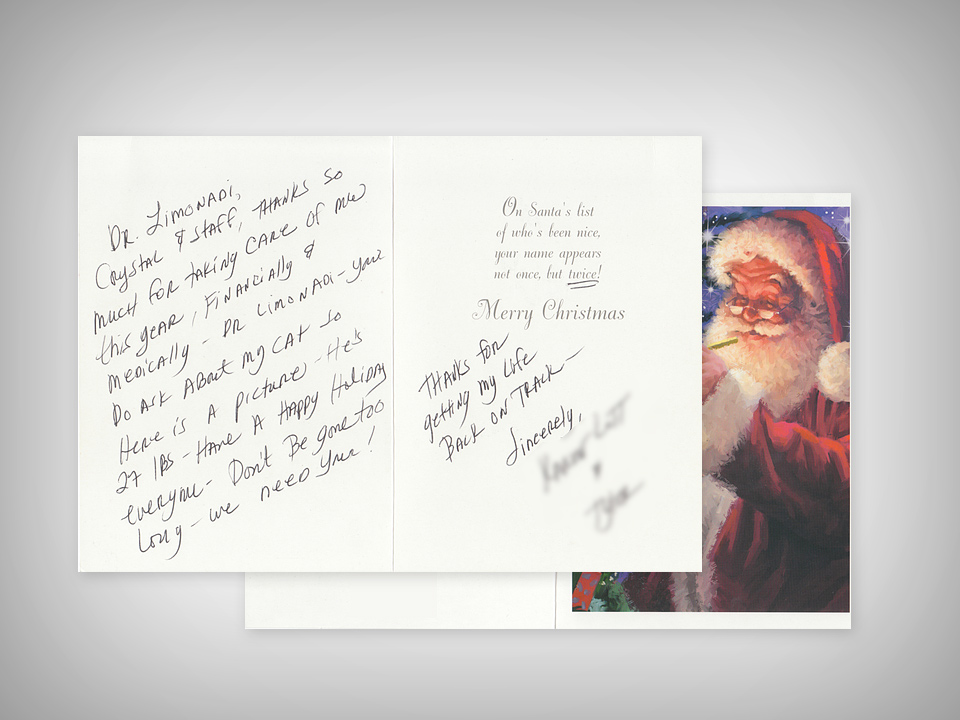 Dr. Limonadi,
Crystal & staff, thanks so
much for taking care of me
this year, financially &
medically - Dr Limonadi - you
do ask about my cat so
Here is a picture - He's
27 lbs - Have a Happy Holiday
everyone - Don't Be gone too
Long - we need you!
On Santa's list
of who's been nice,
your name appears
not once, but twice!
Merry Christmas
Thanks for
getting my life
Back on Track -
Sincerely,